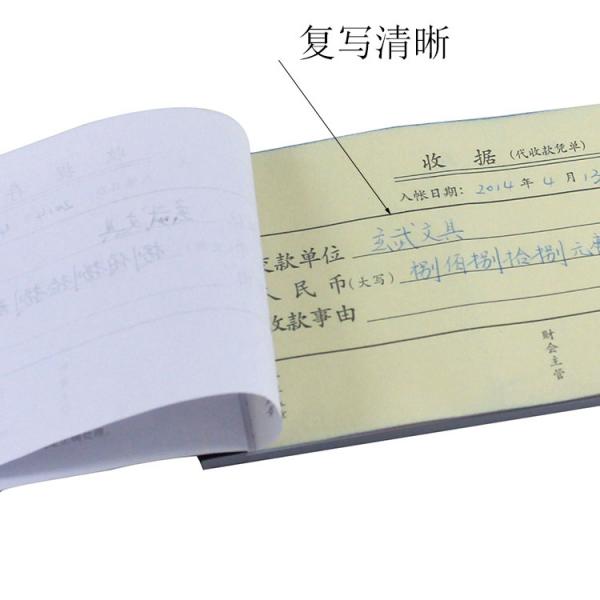 复写清晰
收 据 (代收款凭单)
入帐日期: 2014 年 4 月 13
交款单位 玄武文具
人民币(大写) 捌佰捌拾捌元
收款事由
财会主管